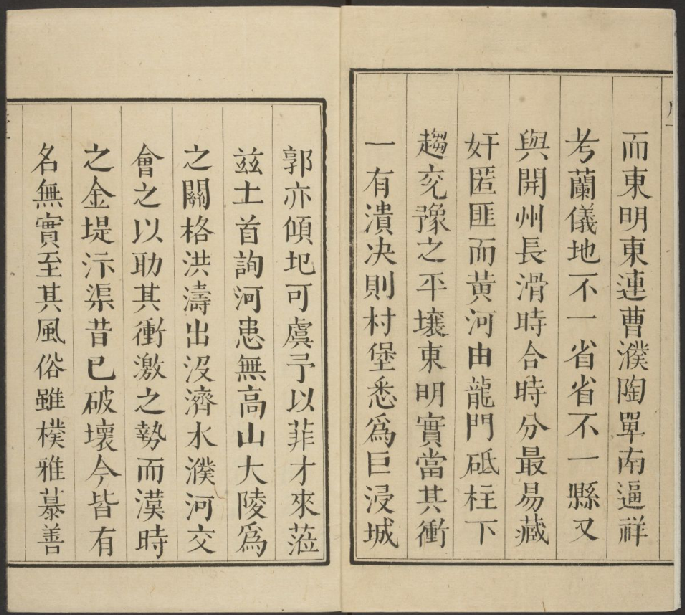 而東明東連曹濮陶單南逼祥
考蘭儀地不一省省不一縣又
與開州長滑時合時分最易藏
奸匿匪而黃河由龍門砥柱下
趨兗豫之平壤東明實當其衝
一有潰决則村堡悉爲巨浸城
郭亦傾圯可虞予以菲才來蒞
玆土首詢河患無高山大陵爲
之關格洪濤出没濟水濮河交
會之以助其衝激之勢而漢時
之金堤沶渠昔已破壞今皆有
名無實至其風俗雖樸雅慕善